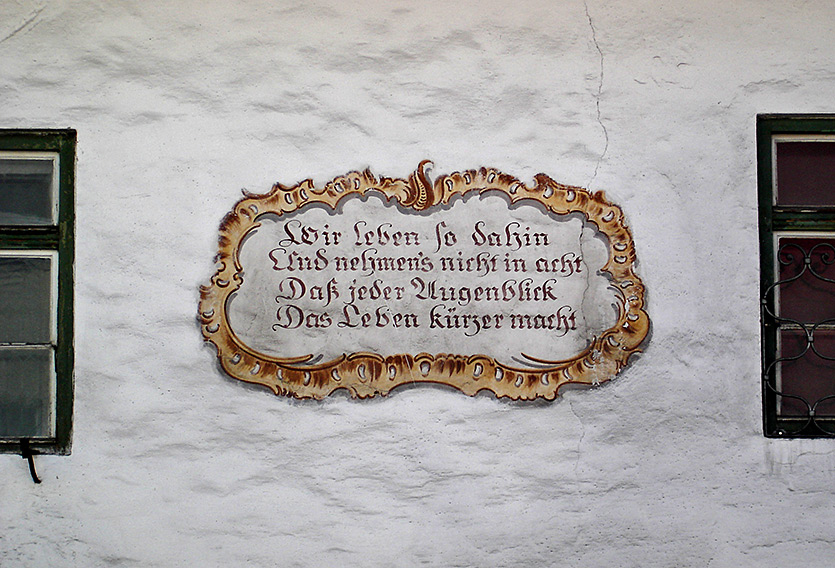 Wir leben so dahin
Und nehmen's nicht in acht
Daß jeder Augenblick
Das Leben kürzer macht